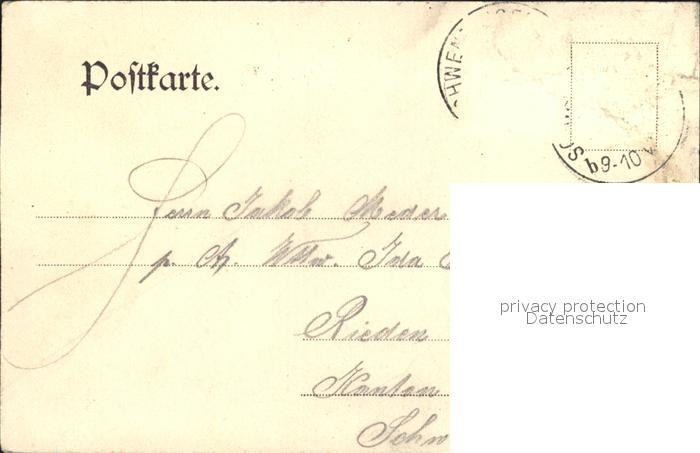 Postkarte.
SCHWE
b9-10V
Herrn Jakob Meder
p. A. Wttw. Ida
Rieden
Kanton
Schw
privacy protection
Datenschutz